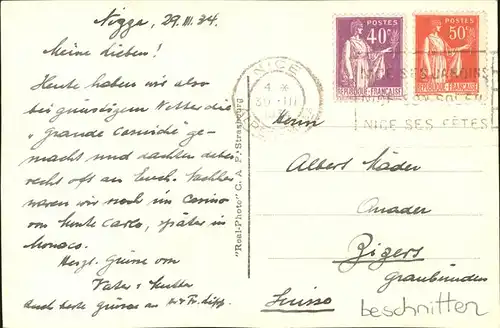 Nizza, 29.III.34.
Meine Lieben!
Heute haben wir also
bei günstigem Wetter die
"Grande Corniche" ge-
macht und dachten dabei
recht oft an Euch. Nachher
waren wir noch im Casino
von Monte Carlo, später in
Monaco.
Herzl. Grüsse von
Vater & Mutter
Auch beste Grüsse an
"Real-Photo" C. A. P. Strasbourg
NICE
4 *
30 - III
POSTES
40c
RÉPUBLIQUE FRANÇAISE
POSTES
50c
RÉPUBLIQUE FRANÇAISE
NICE SES JARDINS
NICE SON SOLEIL
NICE SES FÊTES
Herrn
Albert Mäder
Zizers
Graubünden
Suisse
beschnitten